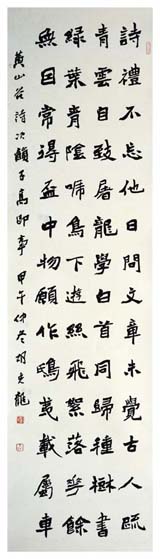 詩禮不忘他日問文章未覺古人疏
青雲自致屠龍學白首同歸種樹書
綠葉青陰啼鳥下遊絲飛絮落華餘
無因常得盃中物願作鴟夷載屬車
黃山谷詩次韻子高即事 甲午仲冬 胡